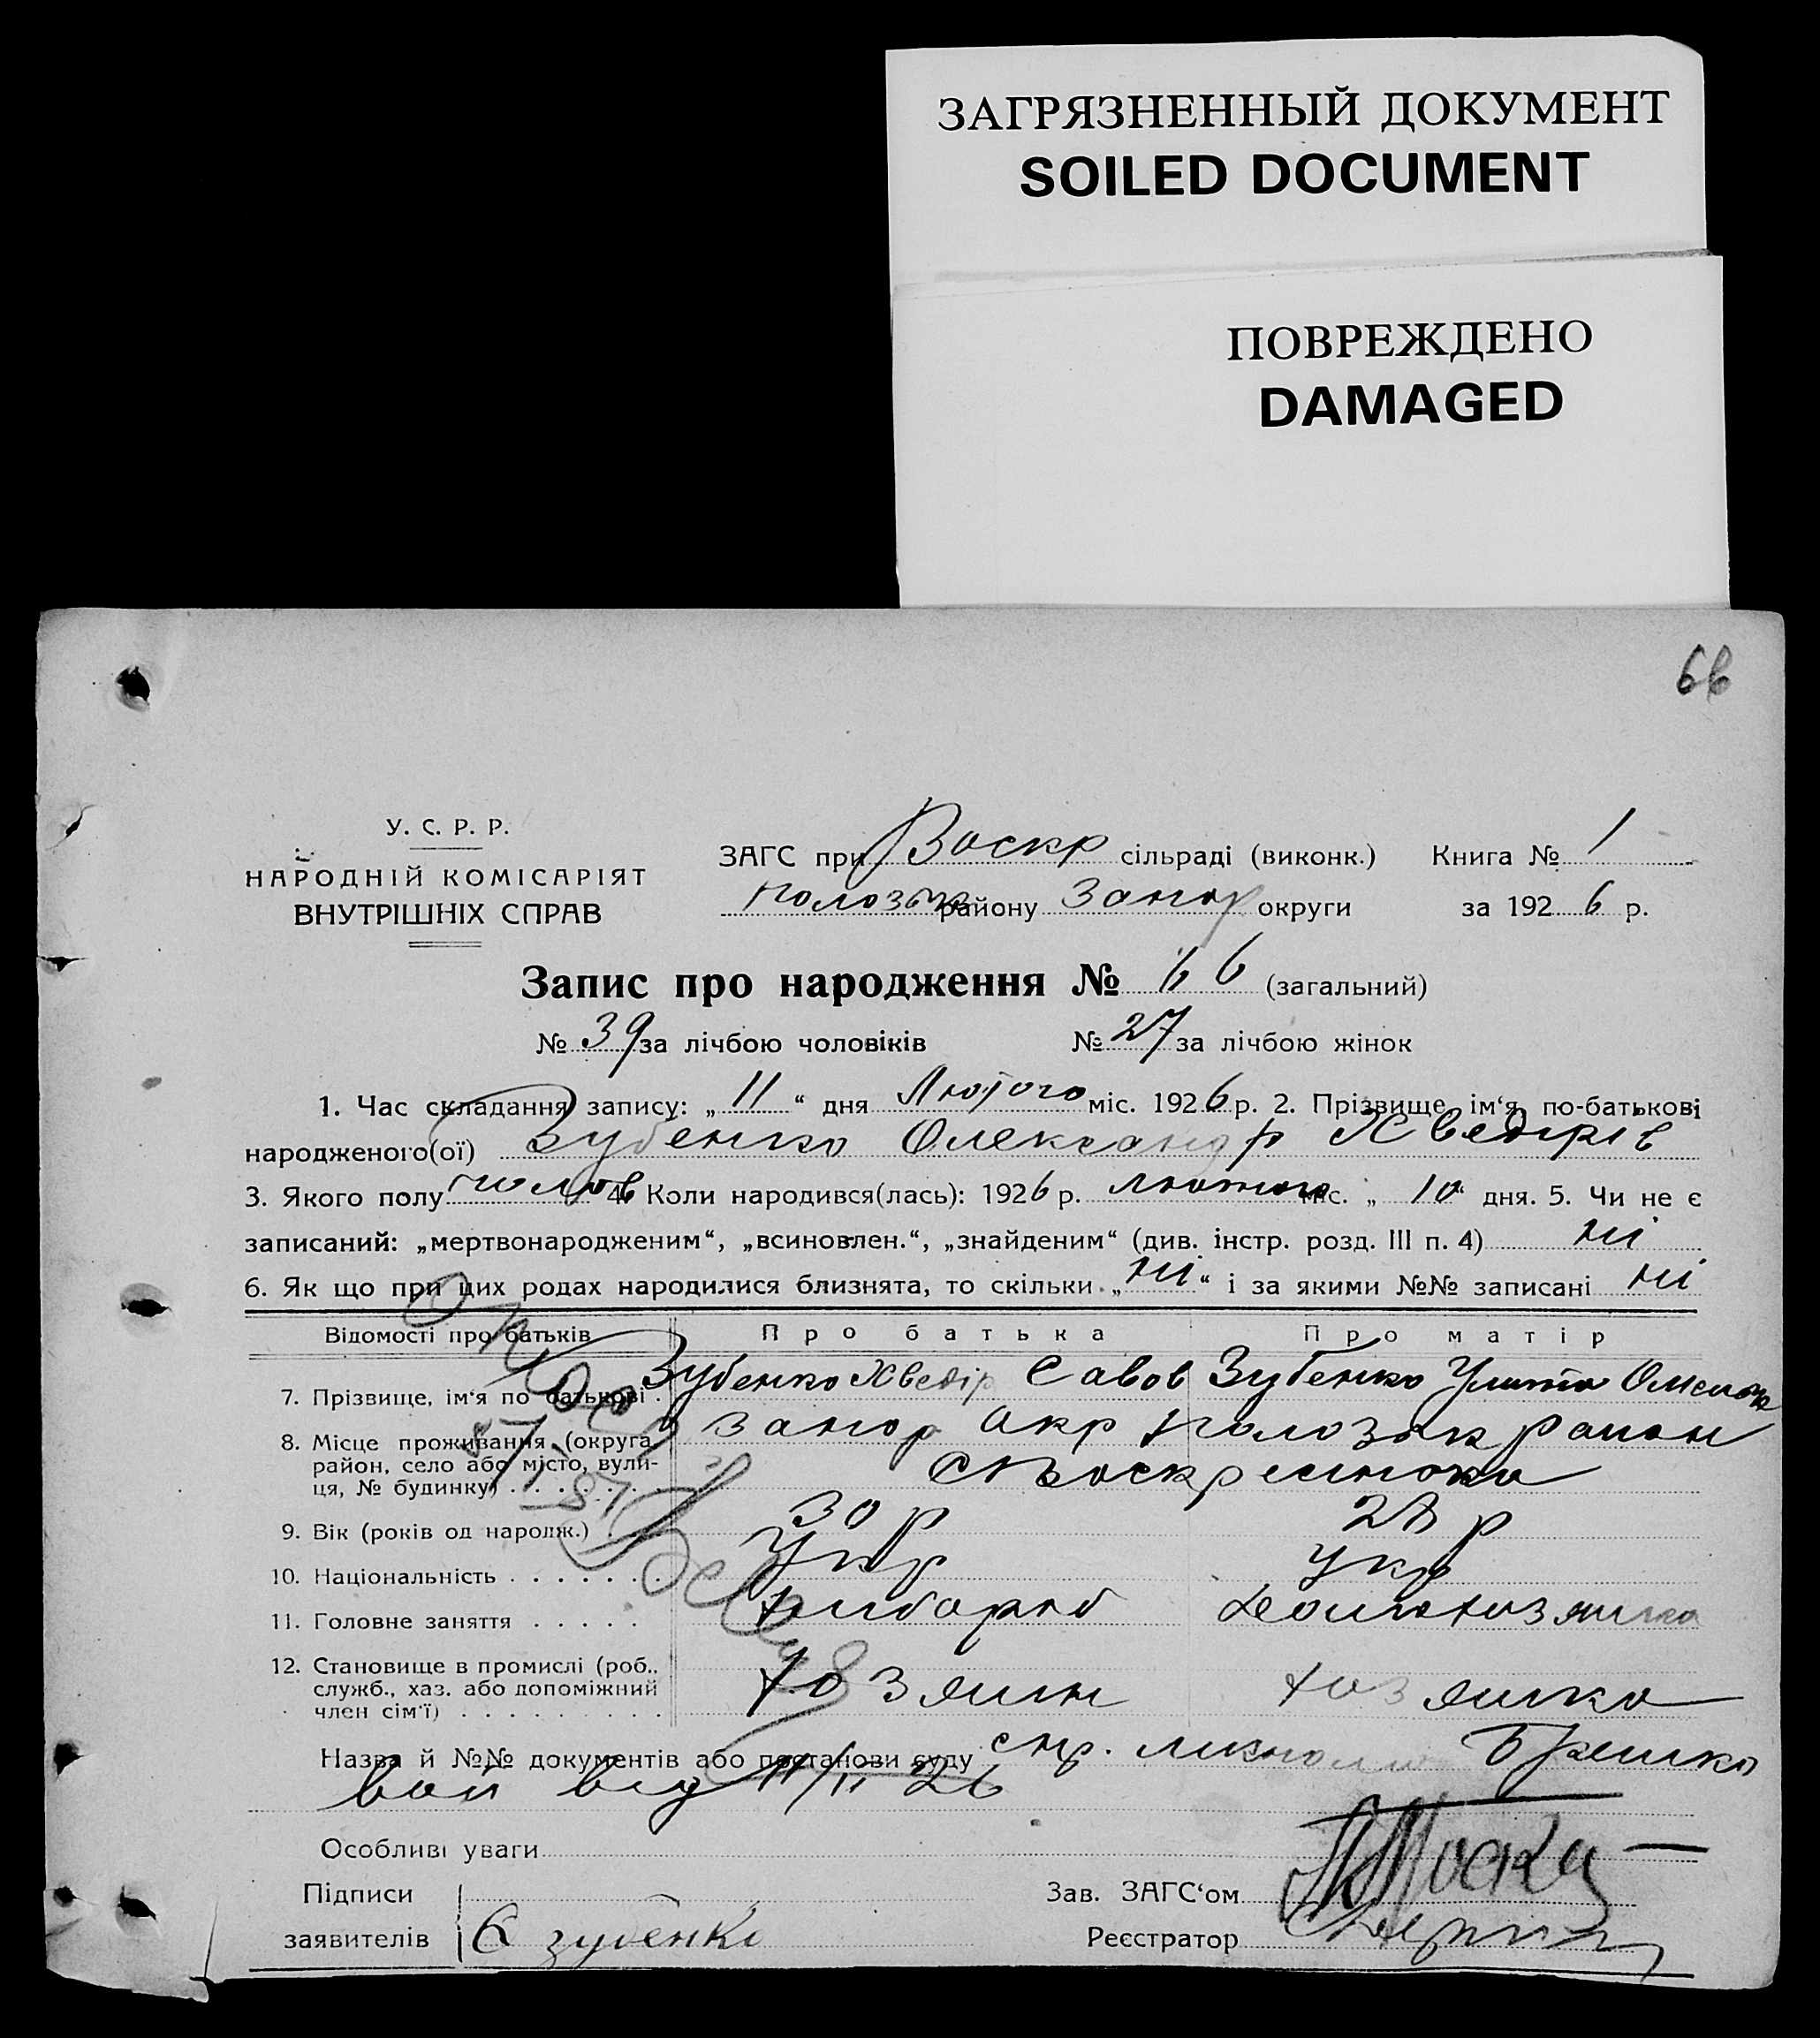 ЗАГРЯЗНЕННЫЙ ДОКУМЕНТ
SOILED DOCUMENT
ПОВРЕЖДЕНО
DAMAGED
66
У. С. Р. Р.
НАРОДНІЙ КОМІСАРІЯТ
ВНУТРІШНІХ СПРАВ
ЗАГС при Воскр сільраді (виконк.) Книга № 1
району Запор округи за 1926 р.
Запис про народження № 66 (загальний)
№ 39 за лічбою чоловіків № 27 за лічбою жінок
1. Час складання запису: „11“ дня Лютого міс. 1926 р. 2. Прізвище, ім'я, по-батькові
народженого(ої) Зубенко Олександр Хведірів
3. Якого полу 4. Коли народився(лась): 1926 р. лютого міс. „10“ дня. 5. Чи не є
записаний: „мертвонародженим“, „всиновлен.“, „знайденим“ (див. інстр. розд. III п. 4) ні
6. Як що при цих родах народилися близнята, то скільки „ні“ і за якими №№ записані ні
Відомості про батьків Про батька Про матір
7. Прізвище, ім'я по батькові Зубенко Хведір Савов Зубенко Улита
8. Місце проживання (округа, Запор окр район
район, село або місто, вули-
ця, № будинку)
9. Вік (років од народж.) 30 р 28 р
10. Національність Укр укр
11. Головне заняття хлібороб
12. Становище в промислі (роб., хозяин хозяйка
служб., хаз. або допоміжний
член сім'ї)
Назва й №№ документів або постанови суду
від 11/II 26
Особливі уваги
Підписи Зав. ЗАГС'ом
заявителів Зубенко Реєстратор